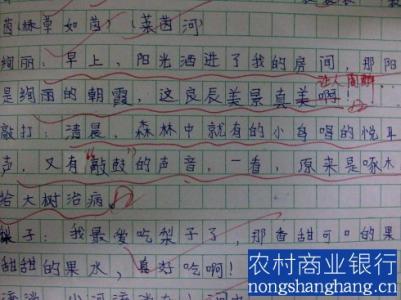 茵(绿草如茵)(莱茵河)
绚丽:早上,阳光洒进了我的房间,那阳
是绚丽的朝霞,这良辰美景真美啊!
让人陶醉
敲打:清晨,森林中就有的小鸟唱的悦耳
声,又有“敲鼓”的声音,一看,原来是啄木
给大树治病
梨子:我最爱吃梨子了,那香甜可口的果
甜甜的果水,真好吃啊!
农村商业银行
nongshanghang.cn